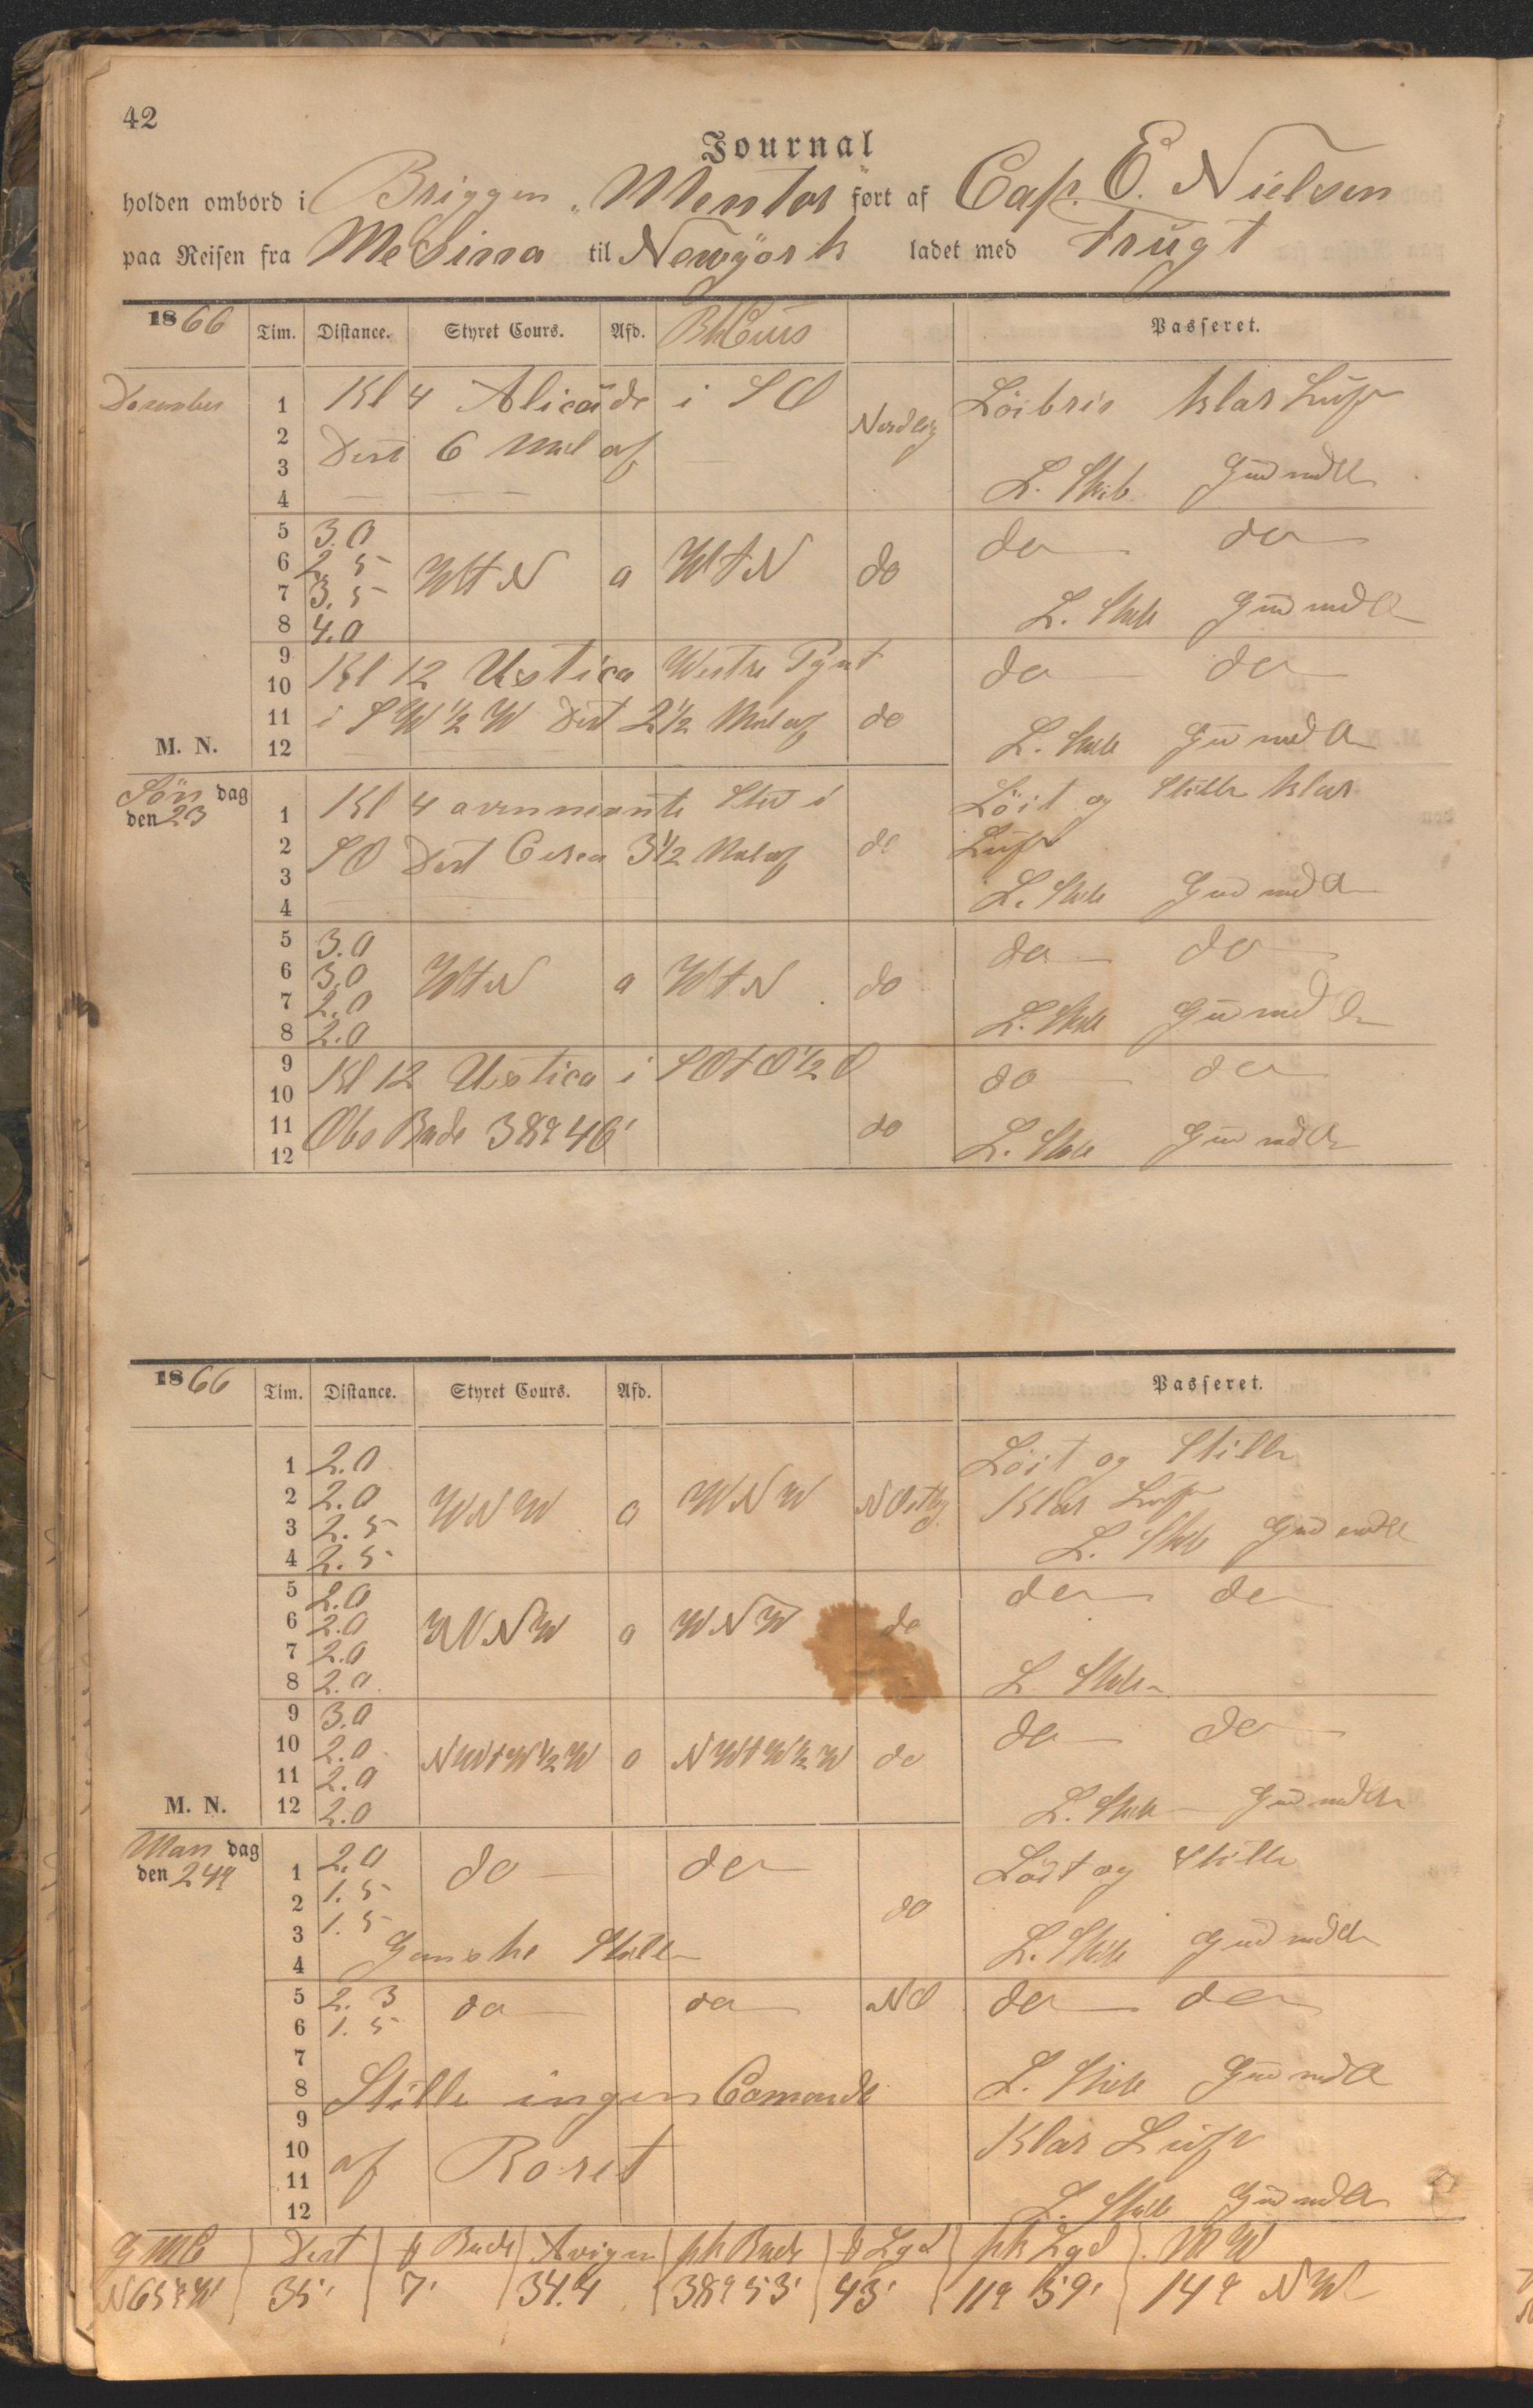 42
Journal
holden ombord i Briggen „Mentor" ført af Cap. E. Nielsen
paa Reisen fra Mesinna til Newyörk ladet med Frügt
1866 Tim. Distance. Styret Cours. Afd. Passeret.
December 1 Kl 4 i SO Löibris klar Lüft
2 Dist 6 Mil af Nordlig
3 L. Skib
4
5 3.0 do do
6 2.5 WtN o WtN do
7 3.5 L.
8 4.0
9 Kl 12 Ustica Westre Pynt do do
10
11 i SW ½ W Dist 2½ Mil af do
M. N. 12 L.
Sön dag
den 23 1 Kl 4 i Löit og Stille klar
2 SO Dist Circa 3½ Mil af do Lüft
3
4 L.
5 3.0 do do
6 3.0 WtN o WtN do
7 2.0
8 2.0 L.
9 Kl 12 Ustica i SOtO½O do do
10
11 Obs Brede 38° 46' do
12 L.
1866 Tim. Distance. Styret Cours. Afd. Passeret.
1 2.0 Löit og Stille
2 2.0 WNW o WNW NOstlig Klar Lüft
3 2.5
4 2.5 L.
5 2.0 do do
6 2.0 WNW o WNW do
7 2.0
8 2.0 L
9 3.0 do do
10 2.0 NWtW½W o NWtW½W do
11 2.0
M. N. 12 2.0 L.
Man dag
den 24 1 2.0 do do Löit og Stille
2 1.5 do
3 1.5
4 Ganske Stille L.
5 2.3 do do NO do do
6 1.5
7
8 Stille ingen Comande L.
9
10 af Roret Klar Lüft
11
12 L.
Dist Brede Lgd Lgd MW
N65°W 35' 7' 34.4 38° 53' 43' 11° 59' 14° NW